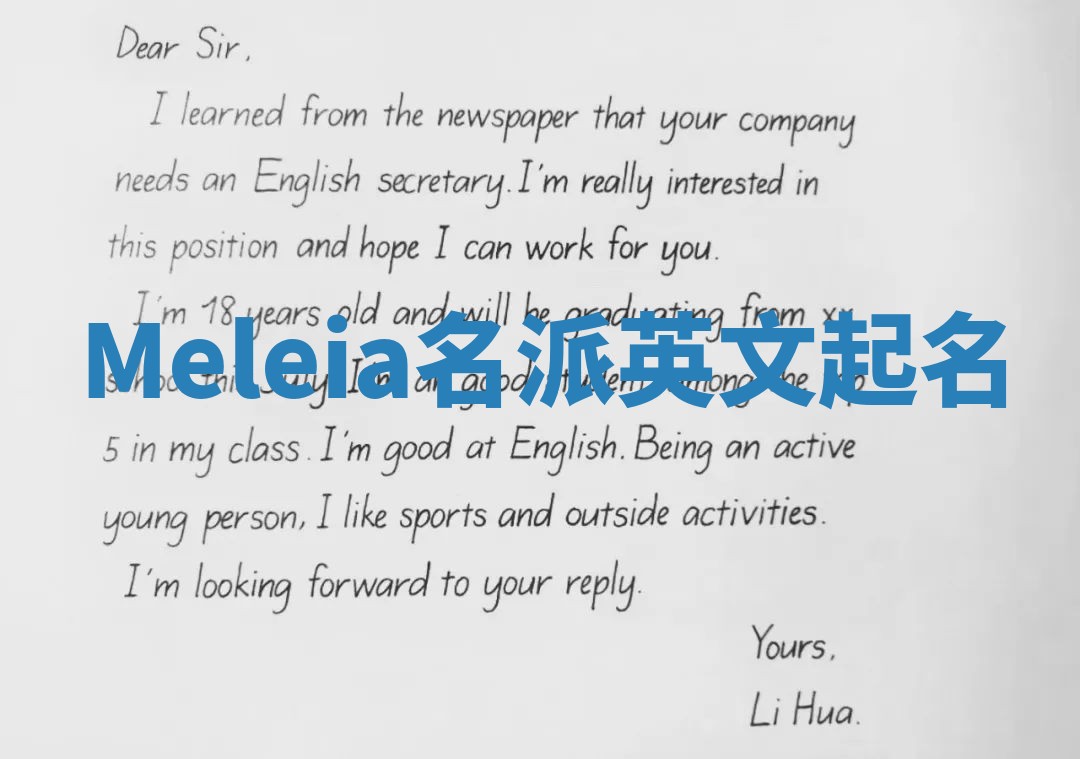 Dear Sir,
I learned from the newspaper that your company
needs an English secretary. I'm really interested in
this position and hope I can work for you.
I'm 18 years old and will be graduating from xx
Meleia名派英文起名
school this July. I'm a good student among the top
5 in my class. I'm good at English. Being an active
young person, I like sports and outside activities.
I'm looking forward to your reply.
Yours,
Li Hua.